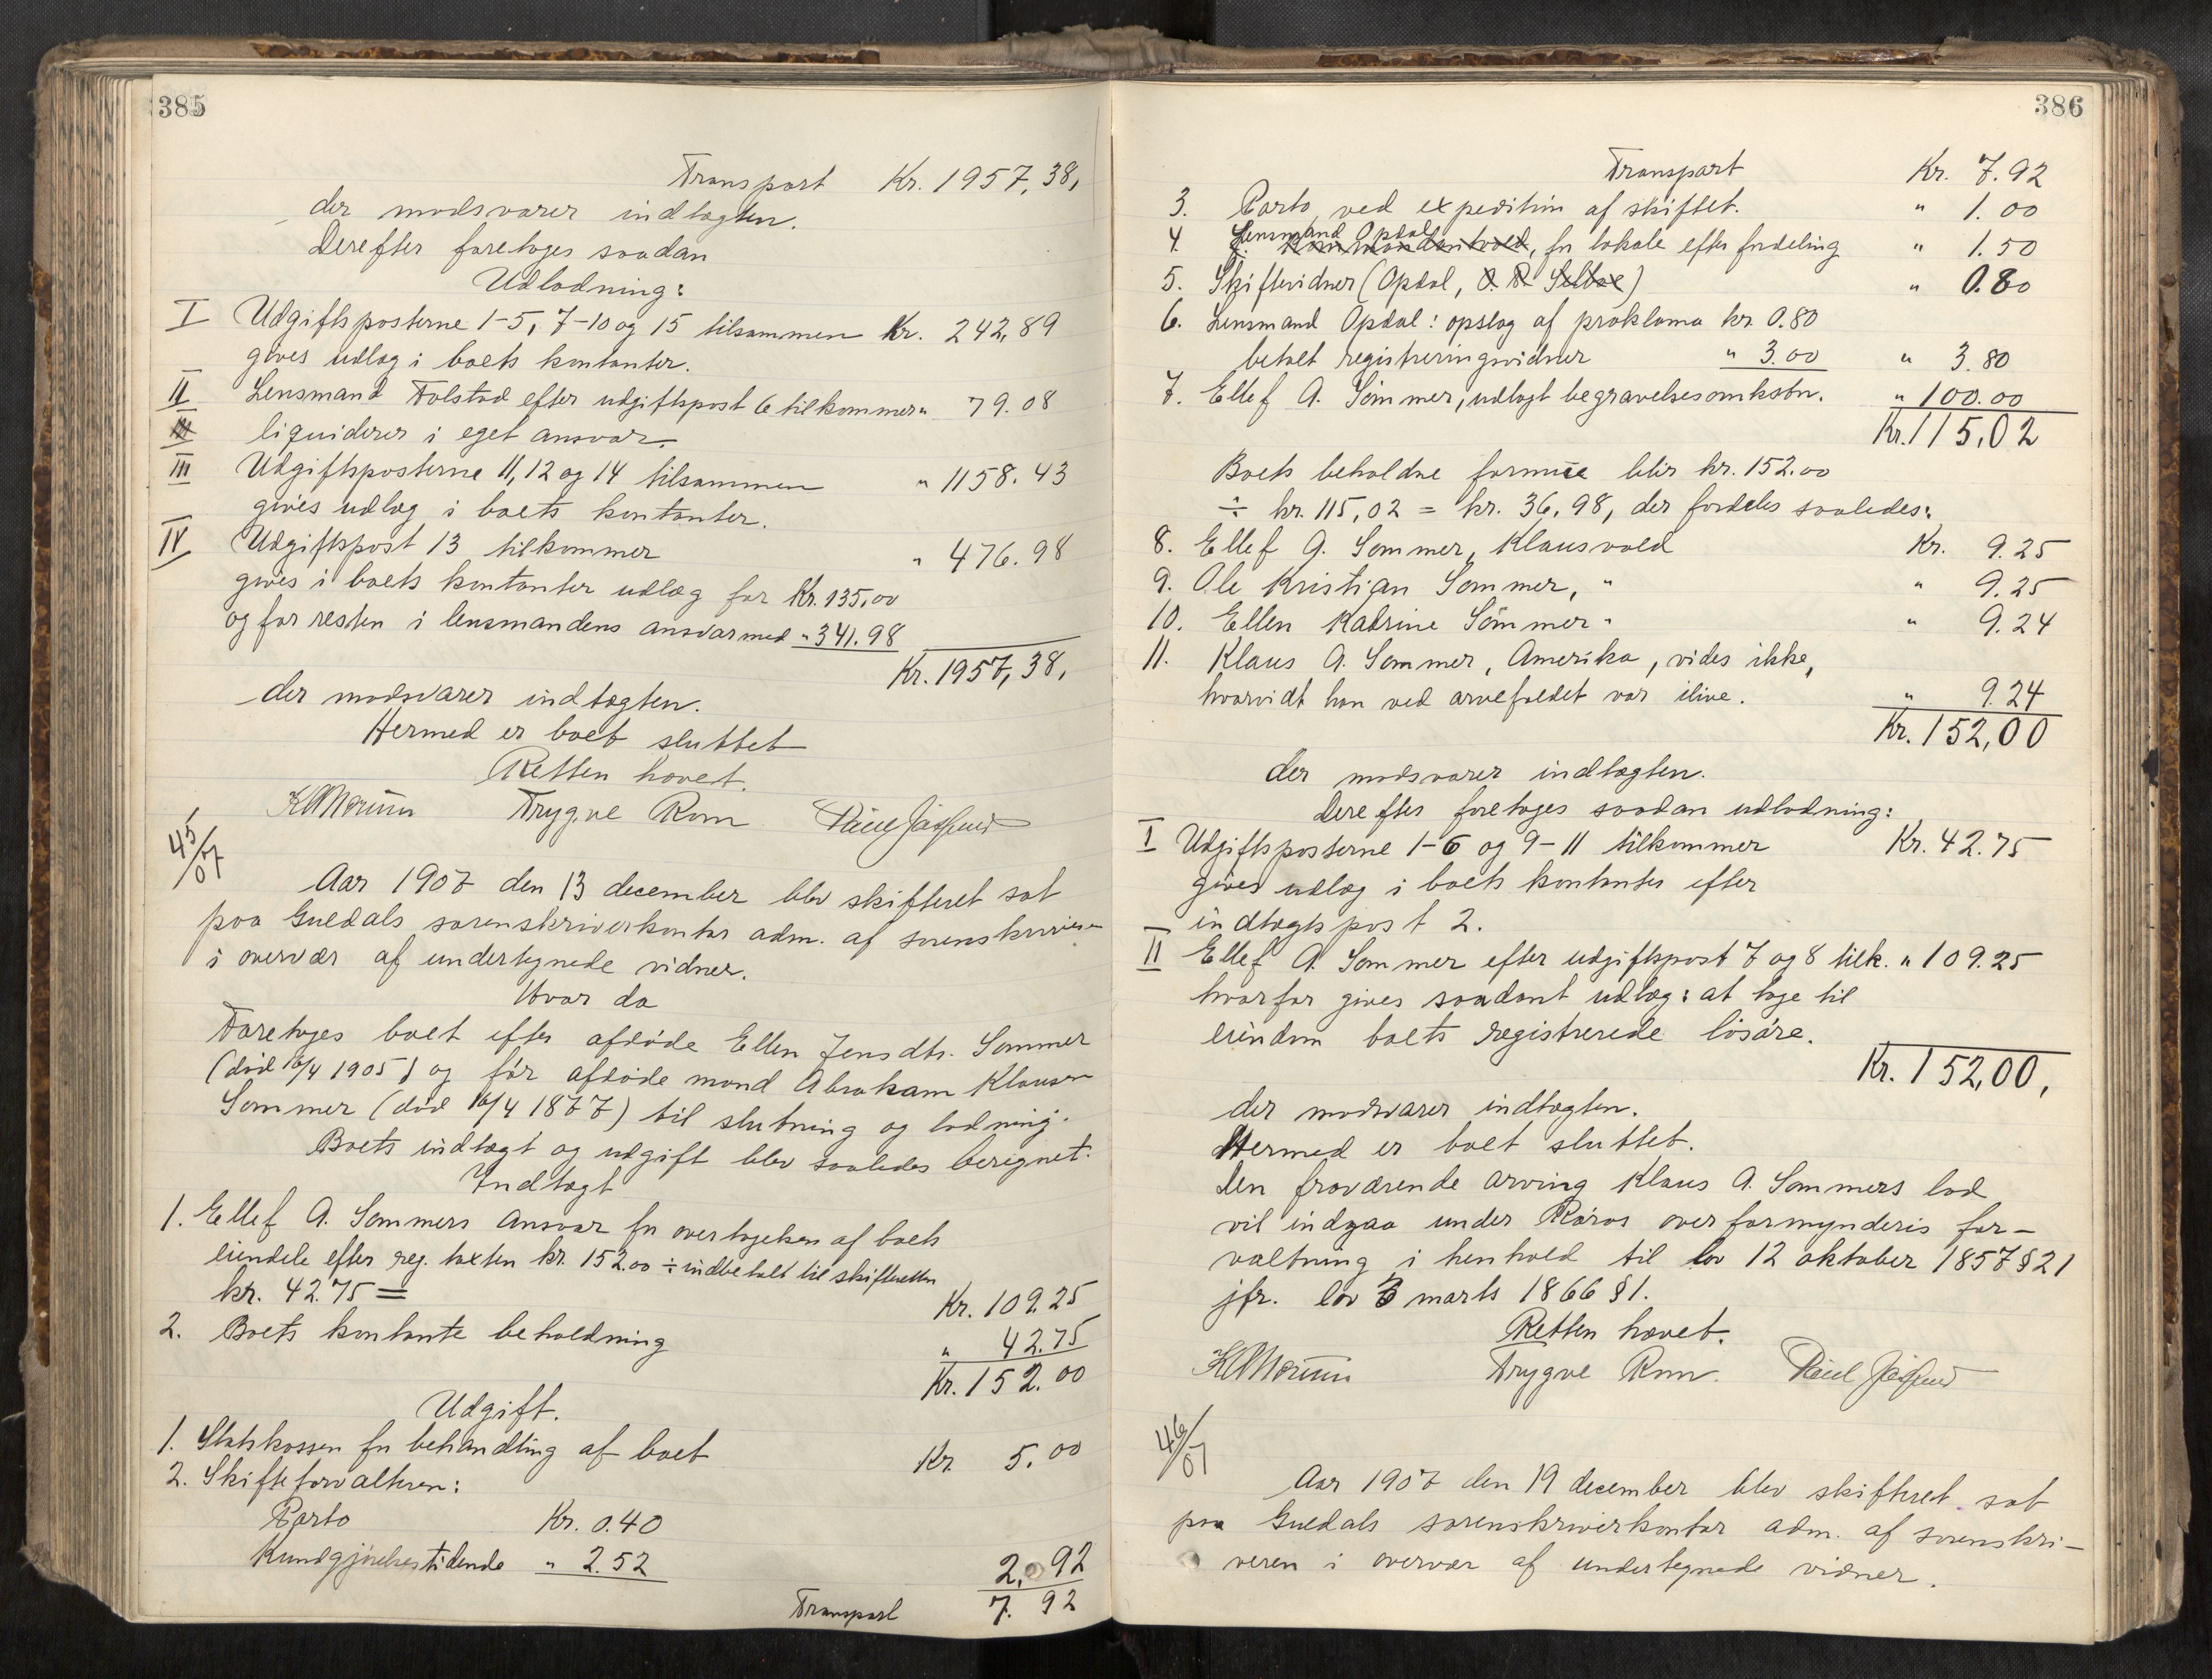 385
Transport Kr. 1957,38,
der modsvarer indtægten.
Derefter foretoges saadan
Udlodning:
I Udgiftsposterne 1-5, 7-10 og 15 tilsammen Kr. 242,89
gives udlæg i boets kontanter.
II Lensmand Tolstad efter udgiftspost 6 tilkommer " 79.08
liquiderer i eget ansvar.
III Udgiftsposterne 11, 12 og 14 tilsammen " 1158.43
gives udlæg i boets kontanter.
IV Udgiftspost 13 tilkommer " 476.98
gives i boets kontanter udlæg for Kr. 135,00
og for resten i lensmandens ansvar med " 341.98
Kr. 1957,38,
der modsvarer indtægten.
Hermed er boet sluttet
Retten hævet.
Trygve Rom
45/07
Aar 1907 den 13 december blev skifteret sat
paa Guldals sorenskriverkontor adm. af sorenskriveren
i overvær af undertegnede vidner.
Hvor da
Foretoges boet efter afdøde Ellen Jensdtr. Sommer
(død 16/4 1905) og før afdøde mand Abraham Klausen
Sommer (død 16/4 1877) til slutning og lodning.
Boets indtægt og udgift blev saaledes beregnet:
Indtægt
1. Ellef A. Sommers ansvar for overtagelsen af boets
eiendele efter reg. taxten kr. 152.00 ÷ indbetalt til skifteretten
kr. 42.75 = Kr. 109.25
2. Boets kontante beholdning " 42.75
Kr. 152.00
Udgift.
1. Statskassen for behandling af boet Kr. 5.00
2. Skifteforvalteren:
Porto Kr. 0.40
Kundgjørelsestidende " 2.52 2.92
Transport 7.92
386
Transport Kr. 7.92
3. Porto ved expedition af skiftet. " 1.00
4. Lensmand Opdal, for lokale efter fordeling " 1.50
5. Skiftevidner (Opdal, O. R. Selboe) " 0.80
6. Lensmand Opdal: opslag af proklama kr. 0.80
betalt registreringsvidner " 3.00 " 3.80
7. Ellef A. Sommer, udlagt begravelsesomkostn. " 100.00
Kr. 115,02
Boets beholdne formue blir kr. 152.00
÷ kr. 115,02 = kr. 36.98, der fordeles saaledes:
8. Ellef A. Sommer, Klausvold Kr. 9.25
9. Ole Kristian Sommer, " " 9.25
10. Ellen Katrine Sommer " " 9.24
11. Klaus A. Sommer, Amerika, vides ikke,
hvorvidt han ved arvefaldet var ilive. " 9.24
Kr. 152,00
der modsvarer indtægten.
Derefter foretoges saadan udlodning:
I Udgiftsposterne 1-6 og 9-11 tilkommer Kr. 42.75
gives udlæg i boets kontanter efter
indtægtspost 2.
II Ellef A. Sommer efter udgiftspost 7 og 8 tilk. " 109.25
hvorfor gives saadant udlæg: at tage til
eiendom boets registrerede løsøre.
Kr. 152,00,
der modsvarer indtægten.
Hermed er boet sluttet.
Den fraværende arving Klaus A. Sommers lod
vil indgaa under Røros overformynderis for-
valtning i henhold til lov 12 oktober 1857 § 21
jfr. lov 3 marts 1866 § 1.
Retten hævet.
Trygve Rom.
46/07
Aar 1907 den 19 december blev skifteret sat
paa Guldals sorenskriverkontor adm. af sorenskri-
veren i overvær af undertegnede vidner.